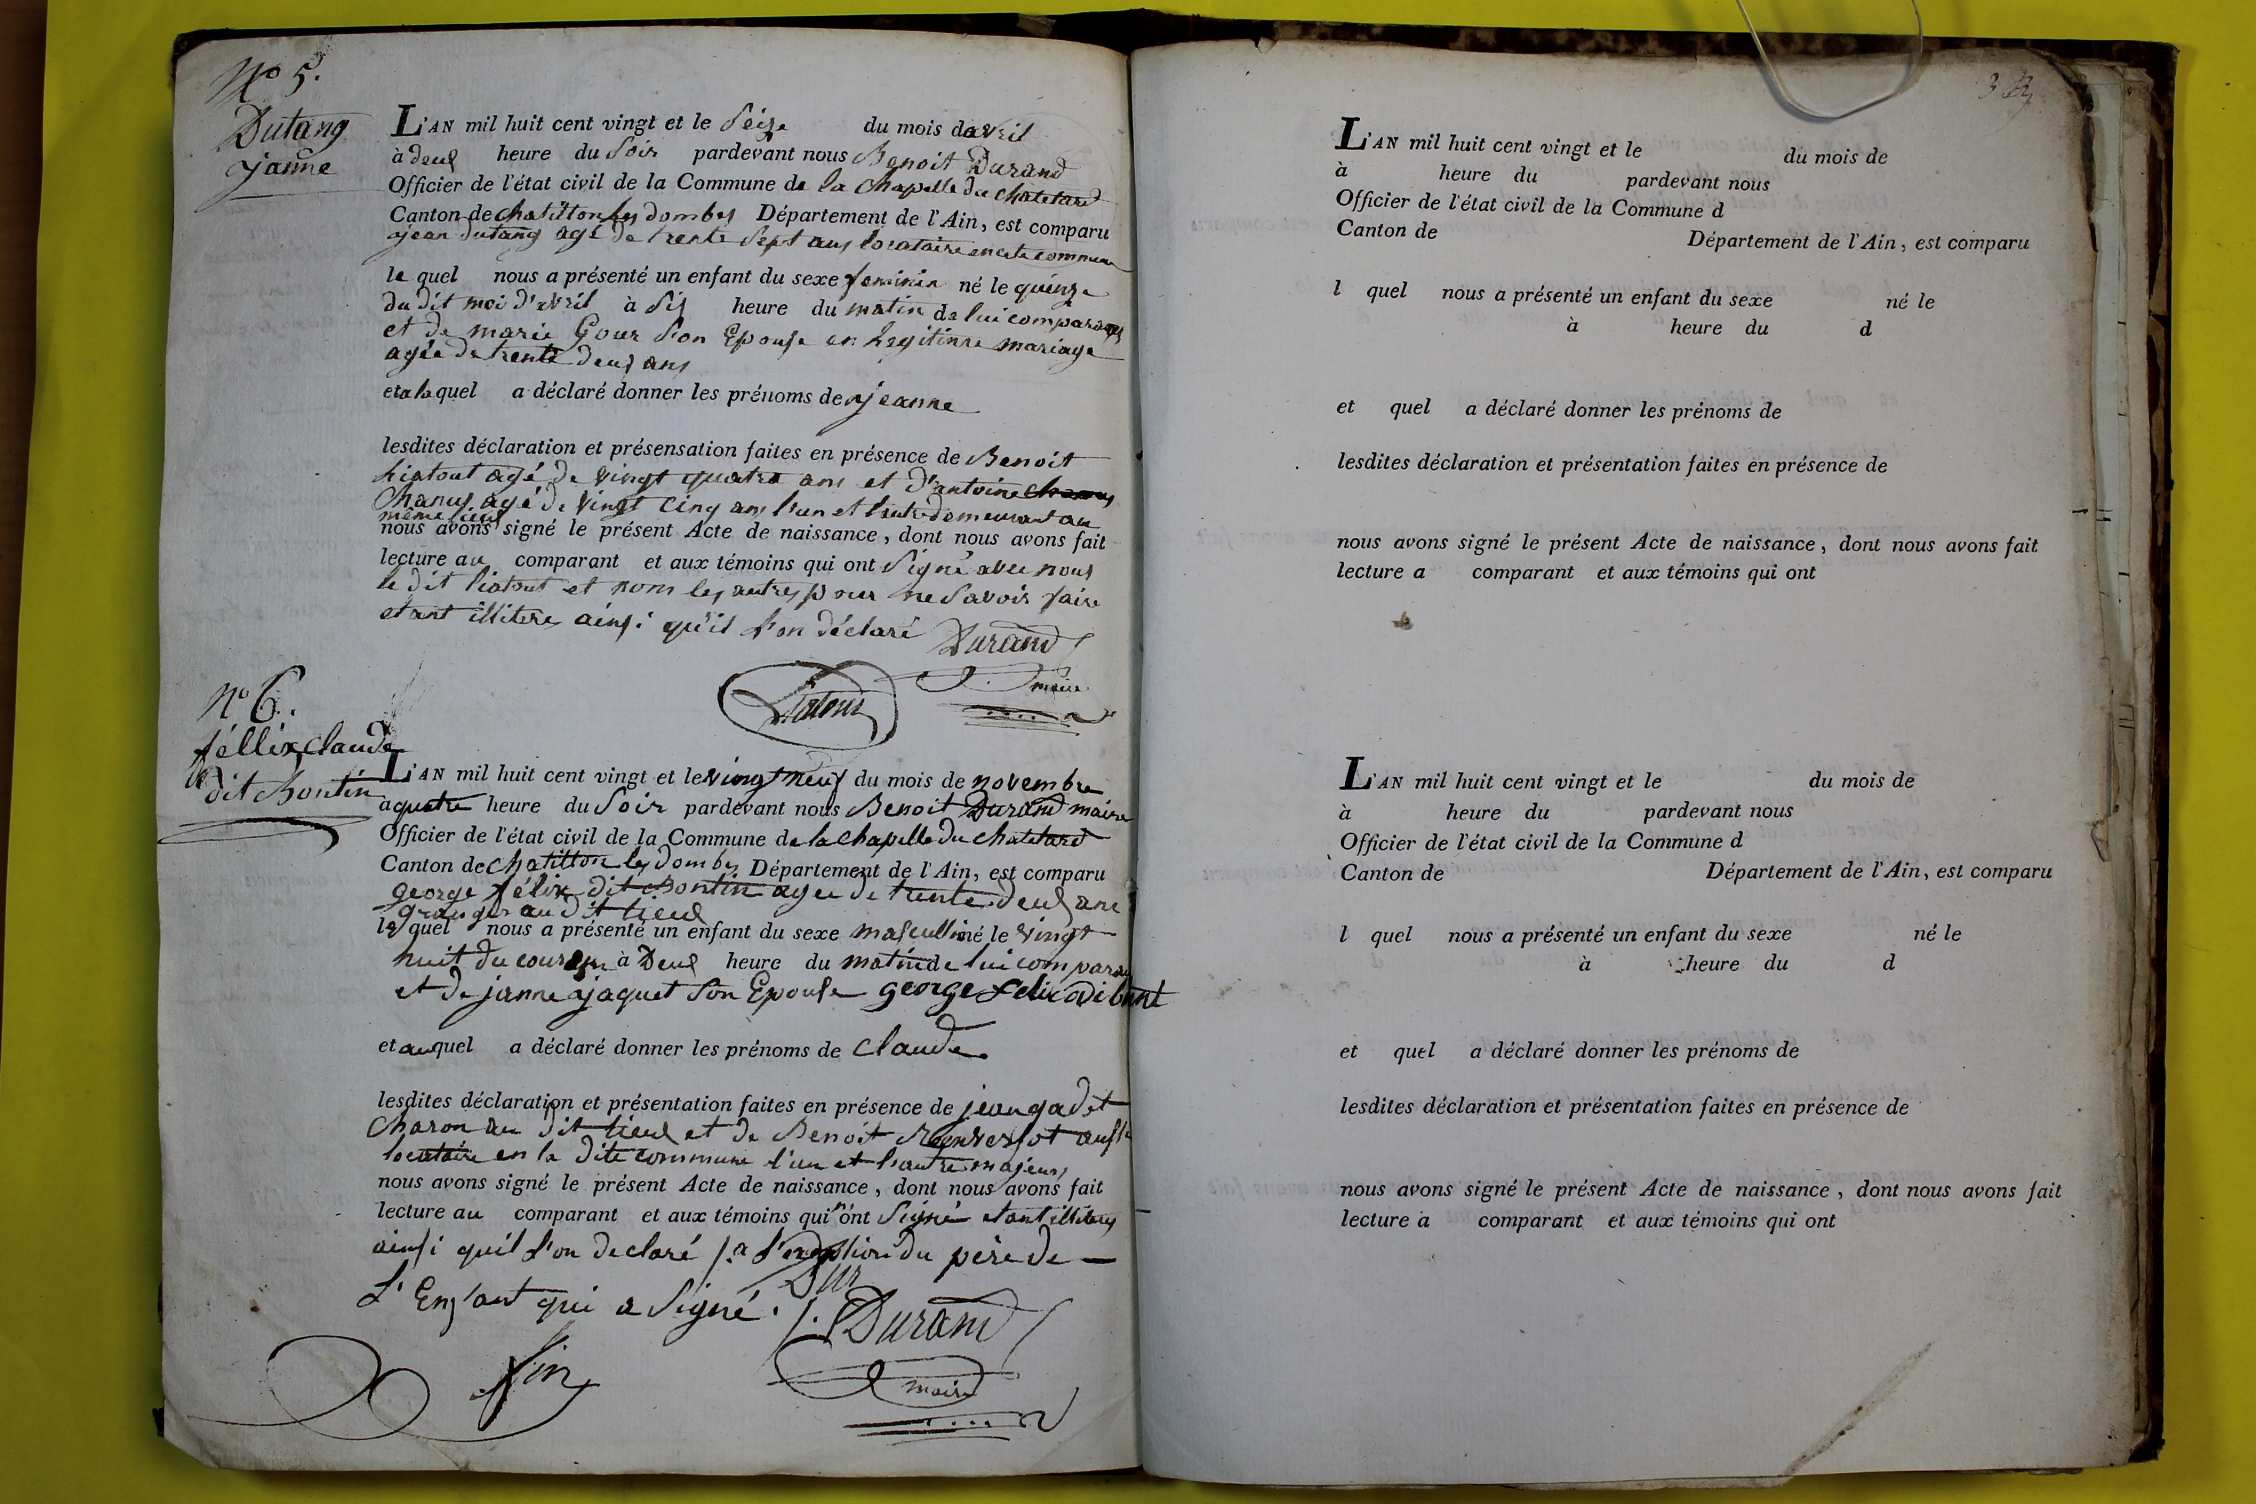 N° 5.
Dutang
janne
L'AN mil huit cent vingt et le seize du mois davril
à deux heure du soir pardevant nous Benoit Durand
Officier de l'état civil de la Commune de la chapelle du chatelard
Canton de chatillon les dombes Département de l'Ain, est comparu
jean dutang agé de trente sept ans locataire en cete commune
le quel nous a présenté un enfant du sexe feminin né le quinze
du dit moi d'avril à six heure du matin de lui comparant
et de marie Gour son Epouse en legitime mariage
agée de trente deux ans
et a la quel a déclaré donner les prénoms de jeanne
lesdites déclaration et présensation faites en présence de Benoit
liatout agé de vingt quatre ans et d'antoine
Chanus agé de vingt cinq ans l'un et l'autre demeurant au
même lieux
nous avons signé le présent Acte de naissance, dont nous avons fait
lecture au comparant et aux témoins qui ont signé avec nous
le dit liatout et nom les autres pour ne savoir faire
etant illiteres ainsi qu'il s'on déclaré Durand
maire
liatout
N° 6.
féllix claude
dit bontin
L'AN mil huit cent vingt et le vingt neuf du mois de novembre
a quatre heure du soir pardevant nous Benoit Durand maire
Officier de l'état civil de la Commune de la chapelle du chatelard
Canton de chatillon les dombes Département de l'Ain, est comparu
george félix dit bontin agee de trente deux ans
granger au dit lieux
le quel nous a présenté un enfant du sexe masculin né le vingt
huit du courant à Deux heure du matin de lui comparant
et de janne jaquet son Epouse george felix di bont
et au quel a déclaré donner les prénoms de claude.
lesdites déclaration et présentation faites en présence de jean gadet
charon au dit lieux et de Benoit aussi
locataire en la dite commune l'un et l'autre majeurs
nous avons signé le présent Acte de naissance, dont nous avons fait
lecture au comparant et aux témoins qui n'ont signé etant illiteres
ainsi quil s'on declaré /. a l'exeption du père de —
L'Enfant qui a signé. Dur
/. Durand
fin
maire
L'AN mil huit cent vingt et le du mois de
à heure du pardevant nous
Officier de l'état civil de la Commune d
Canton de Département de l'Ain, est comparu
l quel nous a présenté un enfant du sexe né le
à heure du d
et quel a déclaré donner les prénoms de
lesdites déclaration et présentation faites en présence de
nous avons signé le présent Acte de naissance, dont nous avons fait
lecture a comparant et aux témoins qui ont
L'AN mil huit cent vingt et le du mois de
à heure du pardevant nous
Officier de l'état civil de la Commune d
Canton de Département de l'Ain, est comparu
l quel nous a présenté un enfant du sexe né le
à heure du d
et quel a déclaré donner les prénoms de
lesdites déclaration et présentation faites en présence de
nous avons signé le présent Acte de naissance, dont nous avons fait
lecture a comparant et aux témoins qui ont